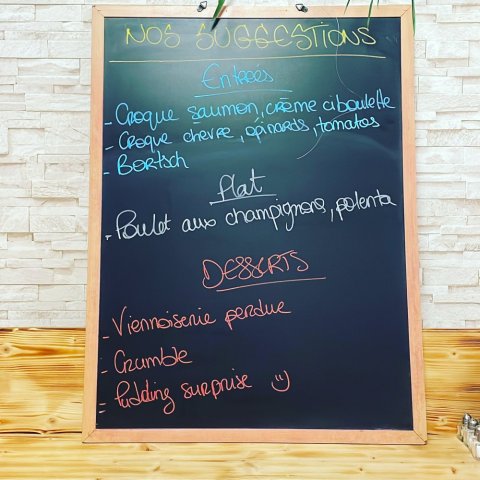 NOS SUGGESTIONS
Entrées
- Croque saumon, crème ciboulette
- Croque chèvre, épinards, tomates
- Bortsch
Plat
- Poulet aux champignons, polenta
DESSERTS
- Viennoiserie perdue
- Crumble
- Pudding surprise :)